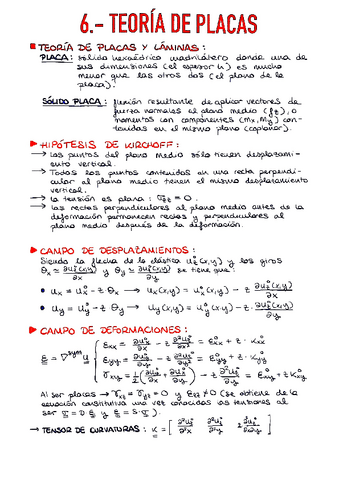 6.- TEORÍA DE PLACAS
TEORÍA DE PLACAS Y LÁMINAS :
PLACA: sólido hexaédrico cuadrilátero donde una de
sus dimensiones (el espesor h) es mucho
menor que las otros dos (el plano de la
placa).
SÓLIDO PLACA: flexión resultante de aplicar vectores de
fuerza normales al plano medio (fz), o
momentos con componentes (Mx, My) con-
tenidas en el mismo plano (coplanar).
HIPÓTESIS DE KIRCHOFF :
→ Los puntos del plano medio sólo tienen desplazami-
ento vertical.
→ Todos los puntos contenidos en una recta perpendi-
cular al plano medio tienen el mismo desplazamiento
vertical.
→ La tensión es plana : σzz = 0.
→ Las rectas perpendiculares al plano medio antes de la
deformación permanecen rectas y perpendiculares al
plano medio después de la deformación.
CAMPO DE DESPLAZAMIENTOS :
Siendo la flecha de la elástica u°z(x,y) y los giros
θx ≈ ∂u°z(x,y)/∂x y θy ≈ ∂u°z(x,y)/∂y se tiene que :
• ux = u°x - z θx → ux(x,y) = u°x(x,y) - z ∂u°z(x,y)/∂x
• uy = u°y - z θy → uy(x,y) = u°y(x,y) - z ∂u°z(x,y)/∂y
CAMPO DE DEFORMACIONES :
Al ser placas → γxz = γyz = 0 y εzz ≠ 0 (se obtiene de la
ecuación constitutiva una vez conocidas las tensiones al
→ TENSOR DE CURVATURAS :